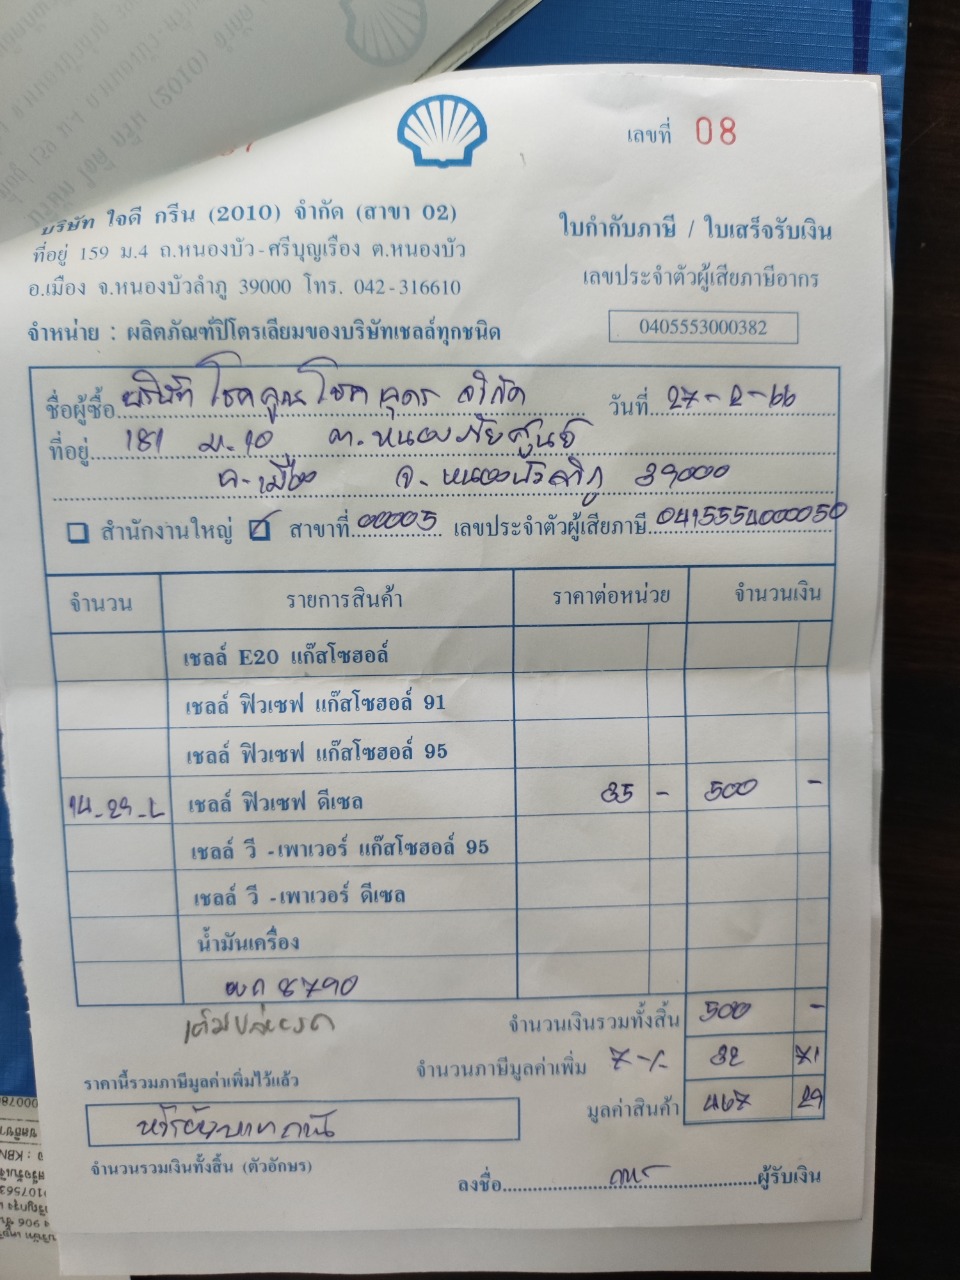 เลขที่ 08
บริษัท ใจดี กรีน (2010) จำกัด (สาขา 02)
ใบกำกับภาษี / ใบเสร็จรับเงิน
ที่อยู่ 159 ม.4 ถ.หนองบัว-ศรีบุญเรือง ต.หนองบัว
เลขประจำตัวผู้เสียภาษีอากร
อ.เมือง จ.หนองบัวลำภู 39000 โทร. 042-316610
0405553000382
จำหน่าย : ผลิตภัณฑ์ปิโตรเลียมของบริษัทเชลล์ทุกชนิด
ชื่อผู้ซื้อ บริษัท โชคคูณโชค อุดร จำกัด วันที่ 27-2-66
ที่อยู่ 181 ม.10 ต.หนองภัยศูนย์
อ.เมือง จ.หนองบัวลำภู 39000
สำนักงานใหญ่ สาขาที่ 00005 เลขประจำตัวผู้เสียภาษี 0415554000050
จำนวน รายการสินค้า ราคาต่อหน่วย จำนวนเงิน
เชลล์ E20 แก๊สโซฮอล์
เชลล์ ฟิวเซฟ แก๊สโซฮอล์ 91
เชลล์ ฟิวเซฟ แก๊สโซฮอล์ 95
14-29-L เชลล์ ฟิวเซฟ ดีเซล 35 - 500 -
เชลล์ วี -เพาเวอร์ แก๊สโซฮอล์ 95
เชลล์ วี -เพาเวอร์ ดีเซล
น้ำมันเครื่อง
8790
จำนวนเงินรวมทั้งสิ้น 500 -
จำนวนภาษีมูลค่าเพิ่ม 7-%. 32 71
ราคานี้รวมภาษีมูลค่าเพิ่มไว้แล้ว
มูลค่าสินค้า 467 29
ห้าร้อยบาทถ้วน
จำนวนรวมเงินทั้งสิ้น (ตัวอักษร)
ลงชื่อ ผู้รับเงิน